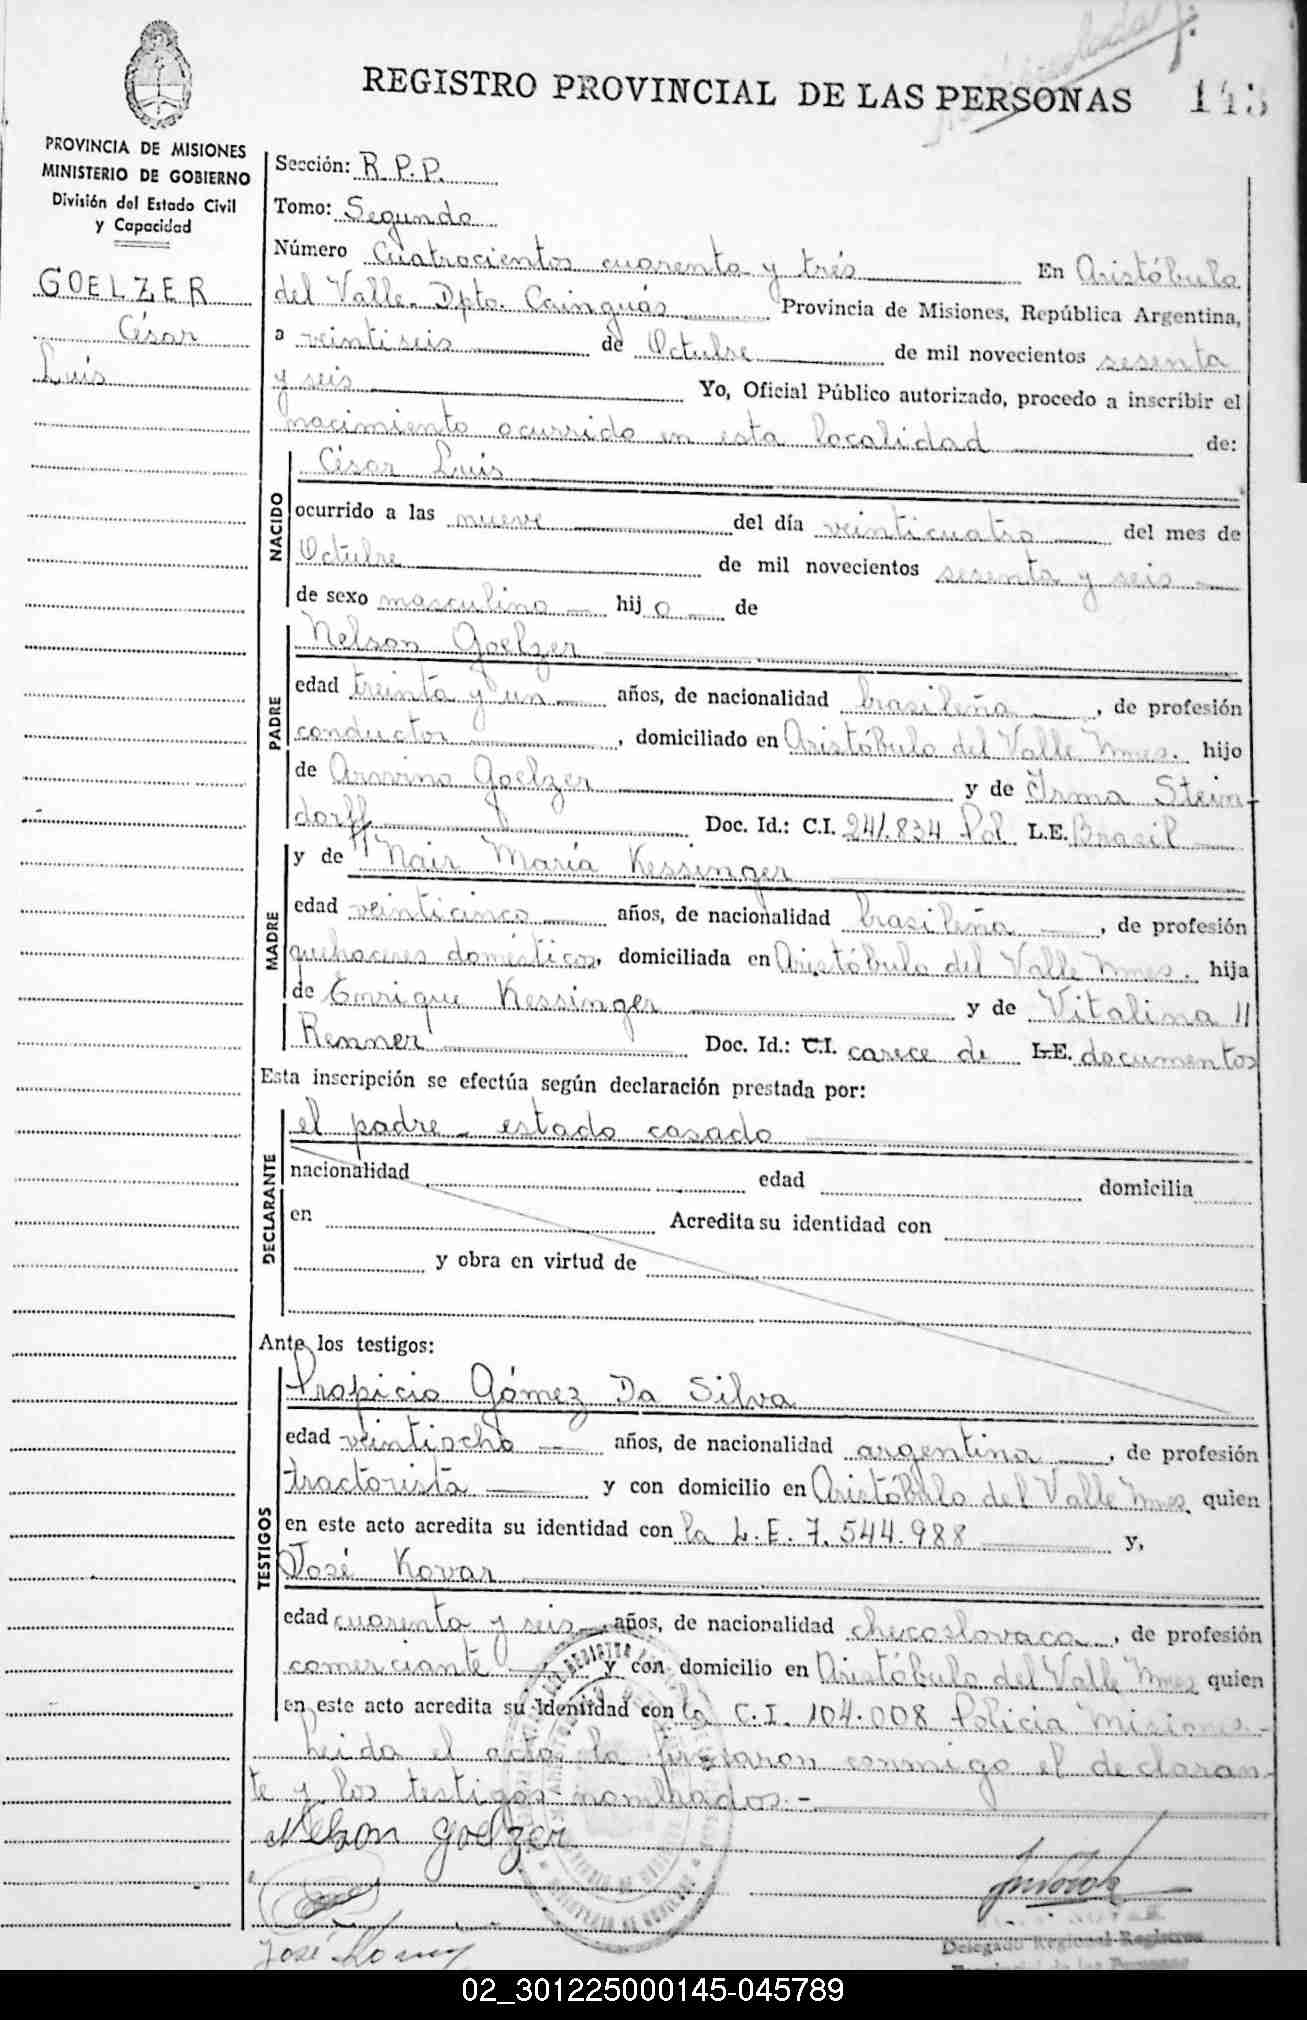 REGISTRO PROVINCIAL DE LAS PERSONAS
PROVINCIA DE MISIONES
MINISTERIO DE GOBIERNO
División del Estado Civil
y Capacidad
GOELZER
César
Luis
Sección: R.P.P.
Tomo: Segundo
Número Cuatrocientos cuarenta y trés En Aristóbulo
del Valle. Dpto. Cainguás Provincia de Misiones, República Argentina,
a veintiseis de Octubre de mil novecientos sesenta
y seis Yo, Oficial Público autorizado, procedo a inscribir el
nacimiento ocurrido en esta localidad de:
NACIDO
César Luis
ocurrido a las nueve del día veinticuatro del mes de
Octubre de mil novecientos sesenta y seis
de sexo masculino hijo de
PADRE
Nelson Goelzer
edad treinta y un años, de nacionalidad brasileña, de profesión
conductor, domiciliado en Aristóbulo del Valle Mnes. hijo
de Arwino Goelzer y de Irma Stein-
dorff Doc. Id.: C.I. 241.834 Pol. L.E. Brasil
MADRE
y de Nair María Kessinger
edad veinticinco años, de nacionalidad brasileña, de profesión
quehaceres domésticos, domiciliada en Aristóbulo del Valle Mnes. hija
de Enrique Kessinger y de Vitalina //
Renner Doc. Id.: C.I. carece de L.E. documentos
Esta inscripción se efectúa según declaración prestada por:
DECLARANTE
el padre - estado casado
nacionalidad edad domicilia
en Acredita su identidad con
y obra en virtud de
Ante los testigos:
TESTIGOS
Propicio Gómez Da Silva
edad veintiocho años, de nacionalidad argentina, de profesión
tractorista y con domicilio en Aristóbulo del Valle Mnes. quien
en este acto acredita su identidad con la L.E. 7.544.988 y,
José Kovar
edad cuarenta y seis años, de nacionalidad checoslovaca, de profesión
comerciante y con domicilio en Aristóbulo del Valle Mnes quien
en este acto acredita su identidad con la C.I. 104.008 Policia Misiones.-
Leida el acta la firmaron conmigo el declaran-
te y los testigos nombrados.-
Nelson goelzer
José
Delegado Regional Registro
Provincial de las Personas
02_301225000145-045789